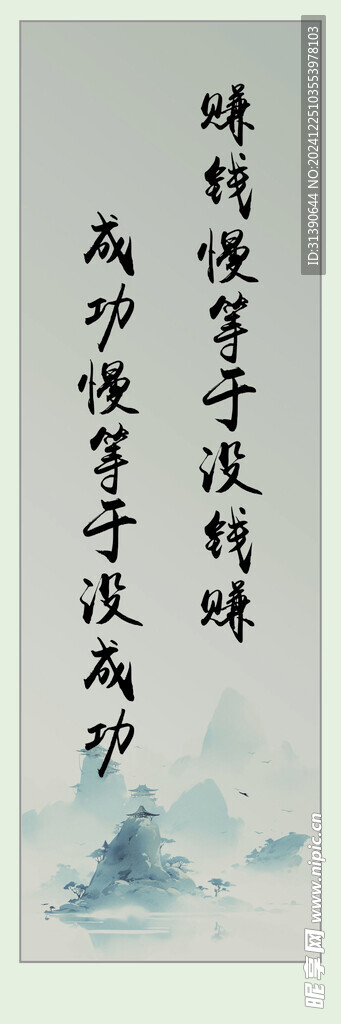 赚钱慢等于没钱赚
成功慢等于没成功
ID:31390644 NO:20241225103553978103
昵享网 www.nipic.cn